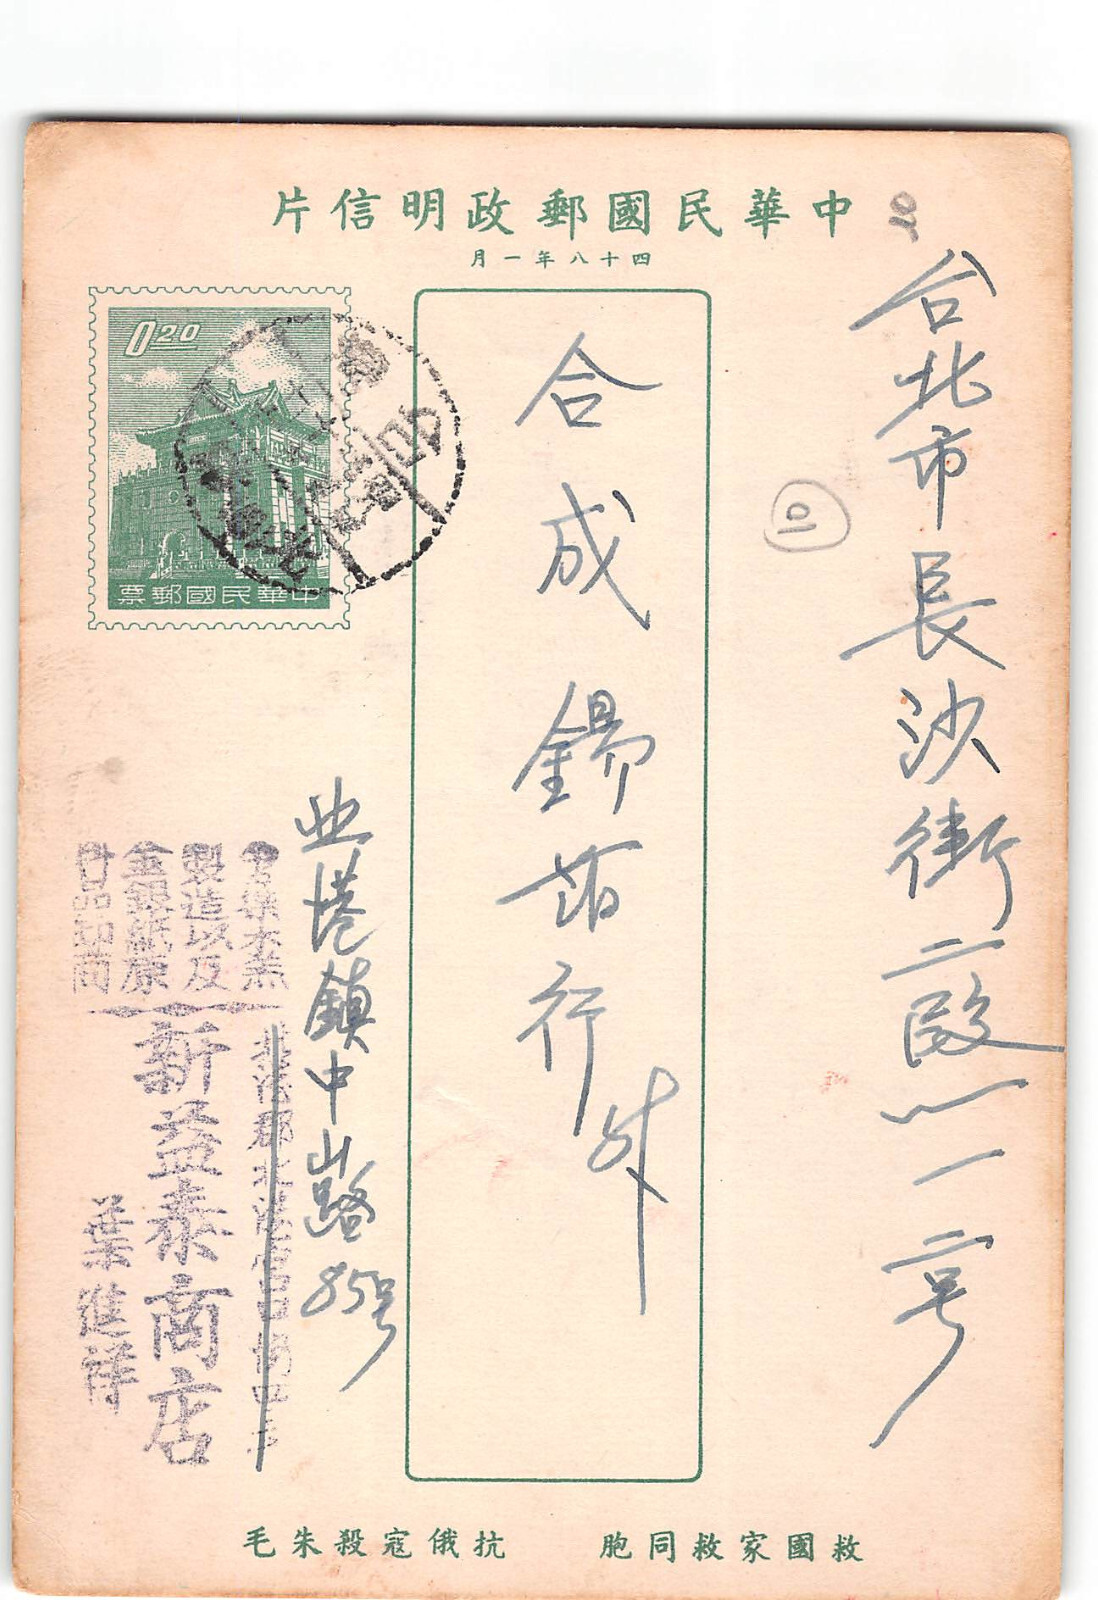 中華民國郵政明信片
四十八年一月
0.20
中華民國郵票
台北市長沙街二段八一一号
合成錫箔行
北港鎮中山路85号
製造以及
金銀紙原
料品卸商
新益泰商店
葉進祥
救國家救同胞
抗俄寇殺朱毛